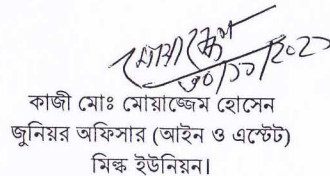 ৩০/১১/২০২১
কাজী মোঃ মোয়াজ্জেম হোসেন
জুনিয়র অফিসার (আইন ও এস্টেট)
মিল্ক ইউনিয়ন।